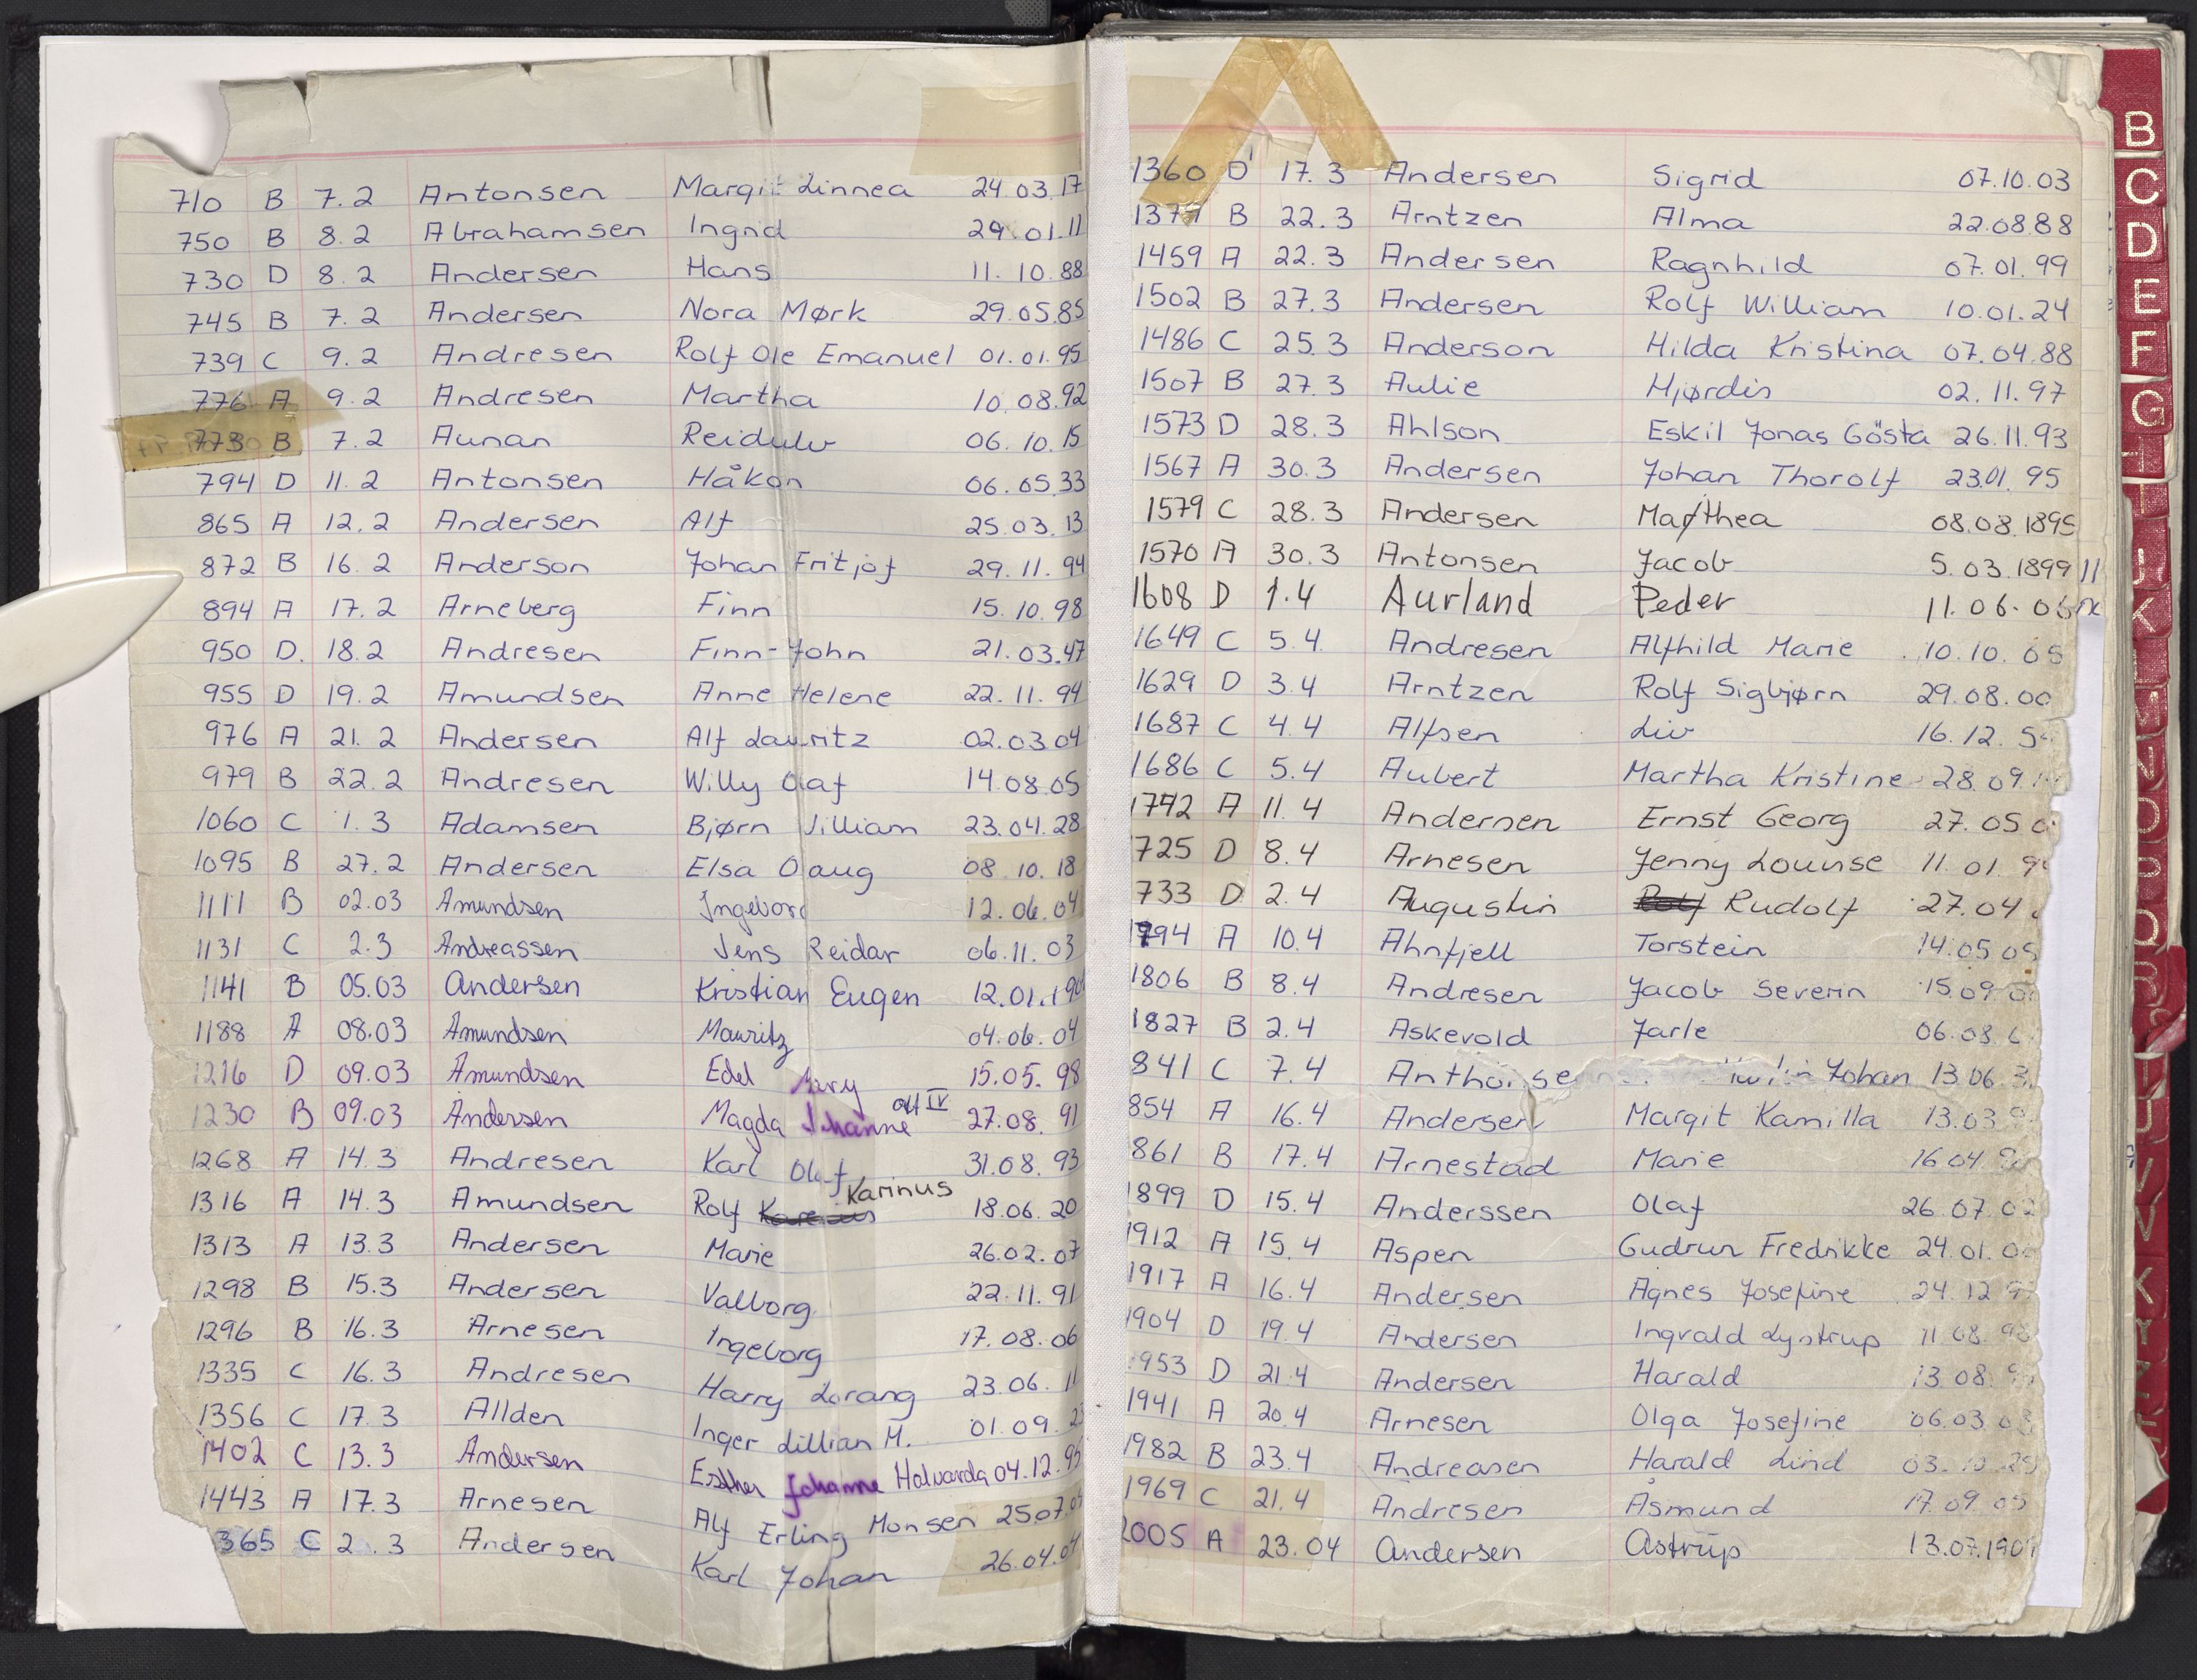 710 B 7.2 Antonsen Margit Linnea 24.03.17
750 B 8.2 Abrahamsen Ingrid 29.01.11
730 D 8.2 Andersen Hans 11.10.88
745 B 7.2 Andersen Nora Mørk 29.05.85
739 C 9.2 Andresen Rolf Ole Emanuel 01.01.95
776 A 9.2 Andresen Martha 10.08.92
773 B 7.2 Aunan Reidulv 06.10.15
794 D 11.2 Antonsen Håkon 06.05.33
865 A 12.2 Andersen Alf 25.03.13
872 B 16.2 Anderson Johan Fritjof 29.11.94
894 A 17.2 Arneberg Finn 15.10.98
950 D. 18.2 Andresen Finn-John 21.03.47
955 D 19.2 Amundsen Anne Helene 22.11.94
976 A 21.2 Andersen Alf Lauritz 02.03.04
979 B 22.2 Andresen Willy Olaf 14.08.05
1060 C 1.3 Adamsen Bjørn William 23.04.28
1095 B 27.2 Andersen Elsa Olaug 08.10.18
1111 B 02.03 Amundsen Ingeborg 12.06.04
1131 C 2.3 Andreassen Jens Reidar 06.11.03
1141 B 05.03 Andersen Kristian Eugen 12.01.
1188 A 08.03 Amundsen Mauritz 04.06.04
1216 D 09.03 Amundsen Edel 15.05.98
1230 B 09.03 Andersen Magda Johanne avd IV 27.08.91
1268 A 14.3 Andresen Karl Olaf 31.08.93
1316 A 14.3 Amundsen Rolf Karinus 18.06.20
1313 A 13.3 Andersen Marie 26.02.07
1298 B 15.3 Andersen Valborg 22.11.91
1296 B 16.3 Arnesen Ingeborg 17.08.06
1335 C 16.3 Andresen Harry Lorang 23.06.11
1356 C 17.3 Allden Inger Lillian M. 01.09.23
1402 C 13.3 Andersen Esther Johanne Halvarda 04.12.95
1443 A 17.3 Arnesen Alf Erling Monsen 25.07.
365 C 2.3 Andersen Karl Johan 26.04.
A
1360 D 17.3 Andersen Sigrid 07.10.03
1379 B 22.3 Arntzen Alma 22.08.88
1459 A 22.3 Andersen Ragnhild 07.01.99
1502 B 27.3 Andersen Rolf William 10.01.24
1486 C 25.3 Anderson Hilda Kristina 07.04.88
1507 B 27.3 Aulie Hjørdis 02.11.97
1573 D 28.3 Ahlson Eskil Jonas Gösta 26.11.93
1567 A 30.3 Andersen Johan Thorolf 23.01.95
1579 C 28.3 Andersen Mathea 08.08.1895
1570 A 30.3 Antonsen Jacob 5.03.1899
1608 D 1.4 Aurland Peder 11.06.
1649 C 5.4 Andresen Alfhild Marie 10.10.05
1629 D 3.4 Arntzen Rolf Sigbjørn 29.08.00
1687 C 4.4 Alfsen Liv 16.12.
1686 C 5.4 Aubert Martha Kristine 28.09.
1742 A 11.4 Andersen Ernst Georg 27.05
725 D 8.4 Arnesen Jenny Lounse 11.01.
733 D 2.4 Augustin Rolf Rudolf 27.04
1794 A 10.4 Ahnfjell Torstein 14.05.05
1806 B 8.4 Andresen Jacob Severin 15.09
1827 B 2.4 Askevold Jarle 06.08
841 C 7.4 Johan 13.06.
854 A 16.4 Andersen Margit Kamilla 13.03
861 B 17.4 Arnestad Marie 16.04
1899 D 15.4 Anderssen Olaf 26.07.02
1912 A 15.4 Aspen Gudrun Fredrikke 24.01.
1917 A 16.4 Andersen Agnes Josefine 24.12
1904 D 19.4 Andersen Ingvald Lystrup 11.08.
953 D 21.4 Andersen Harald 13.08.
1941 A 20.4 Arnesen Olga Josefine 06.03.03
1982 B 23.4 Andreasen Harald Lind 03.10.
1969 C 21.4 Andresen Åsmund 17.09.05
2005 A 23.04 Andersen Astrup 13.07.
B
C
D
E
F
G
J
K